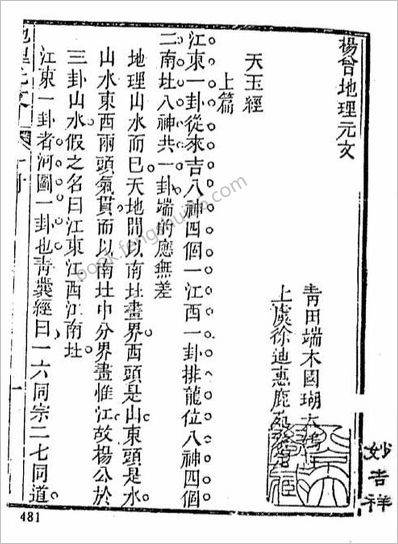 楊曾地理元文
青田端木國瑚
上虞徐迪惠鹿苑
天玉經
上篇
江東一卦從來吉八神四個一江西一卦排龍位八神四個
二南北八神共一卦端的應無差
地理山水而已天地間以南北畫界西頭是山東頭是水
山水東西兩頭氣貫而以南北中分界畫惟江故楊公於
三卦山水假之名曰江東江西江南北
江東一卦者河圖一卦也青囊經曰一六同宗二七同道
一
妙吉祥
481